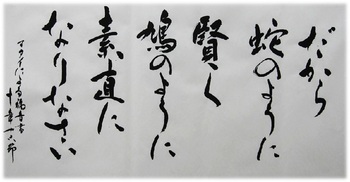 だから
蛇のように
賢く
鳩のように
素直に
なりなさい
マタイによる福音書
十章十六節